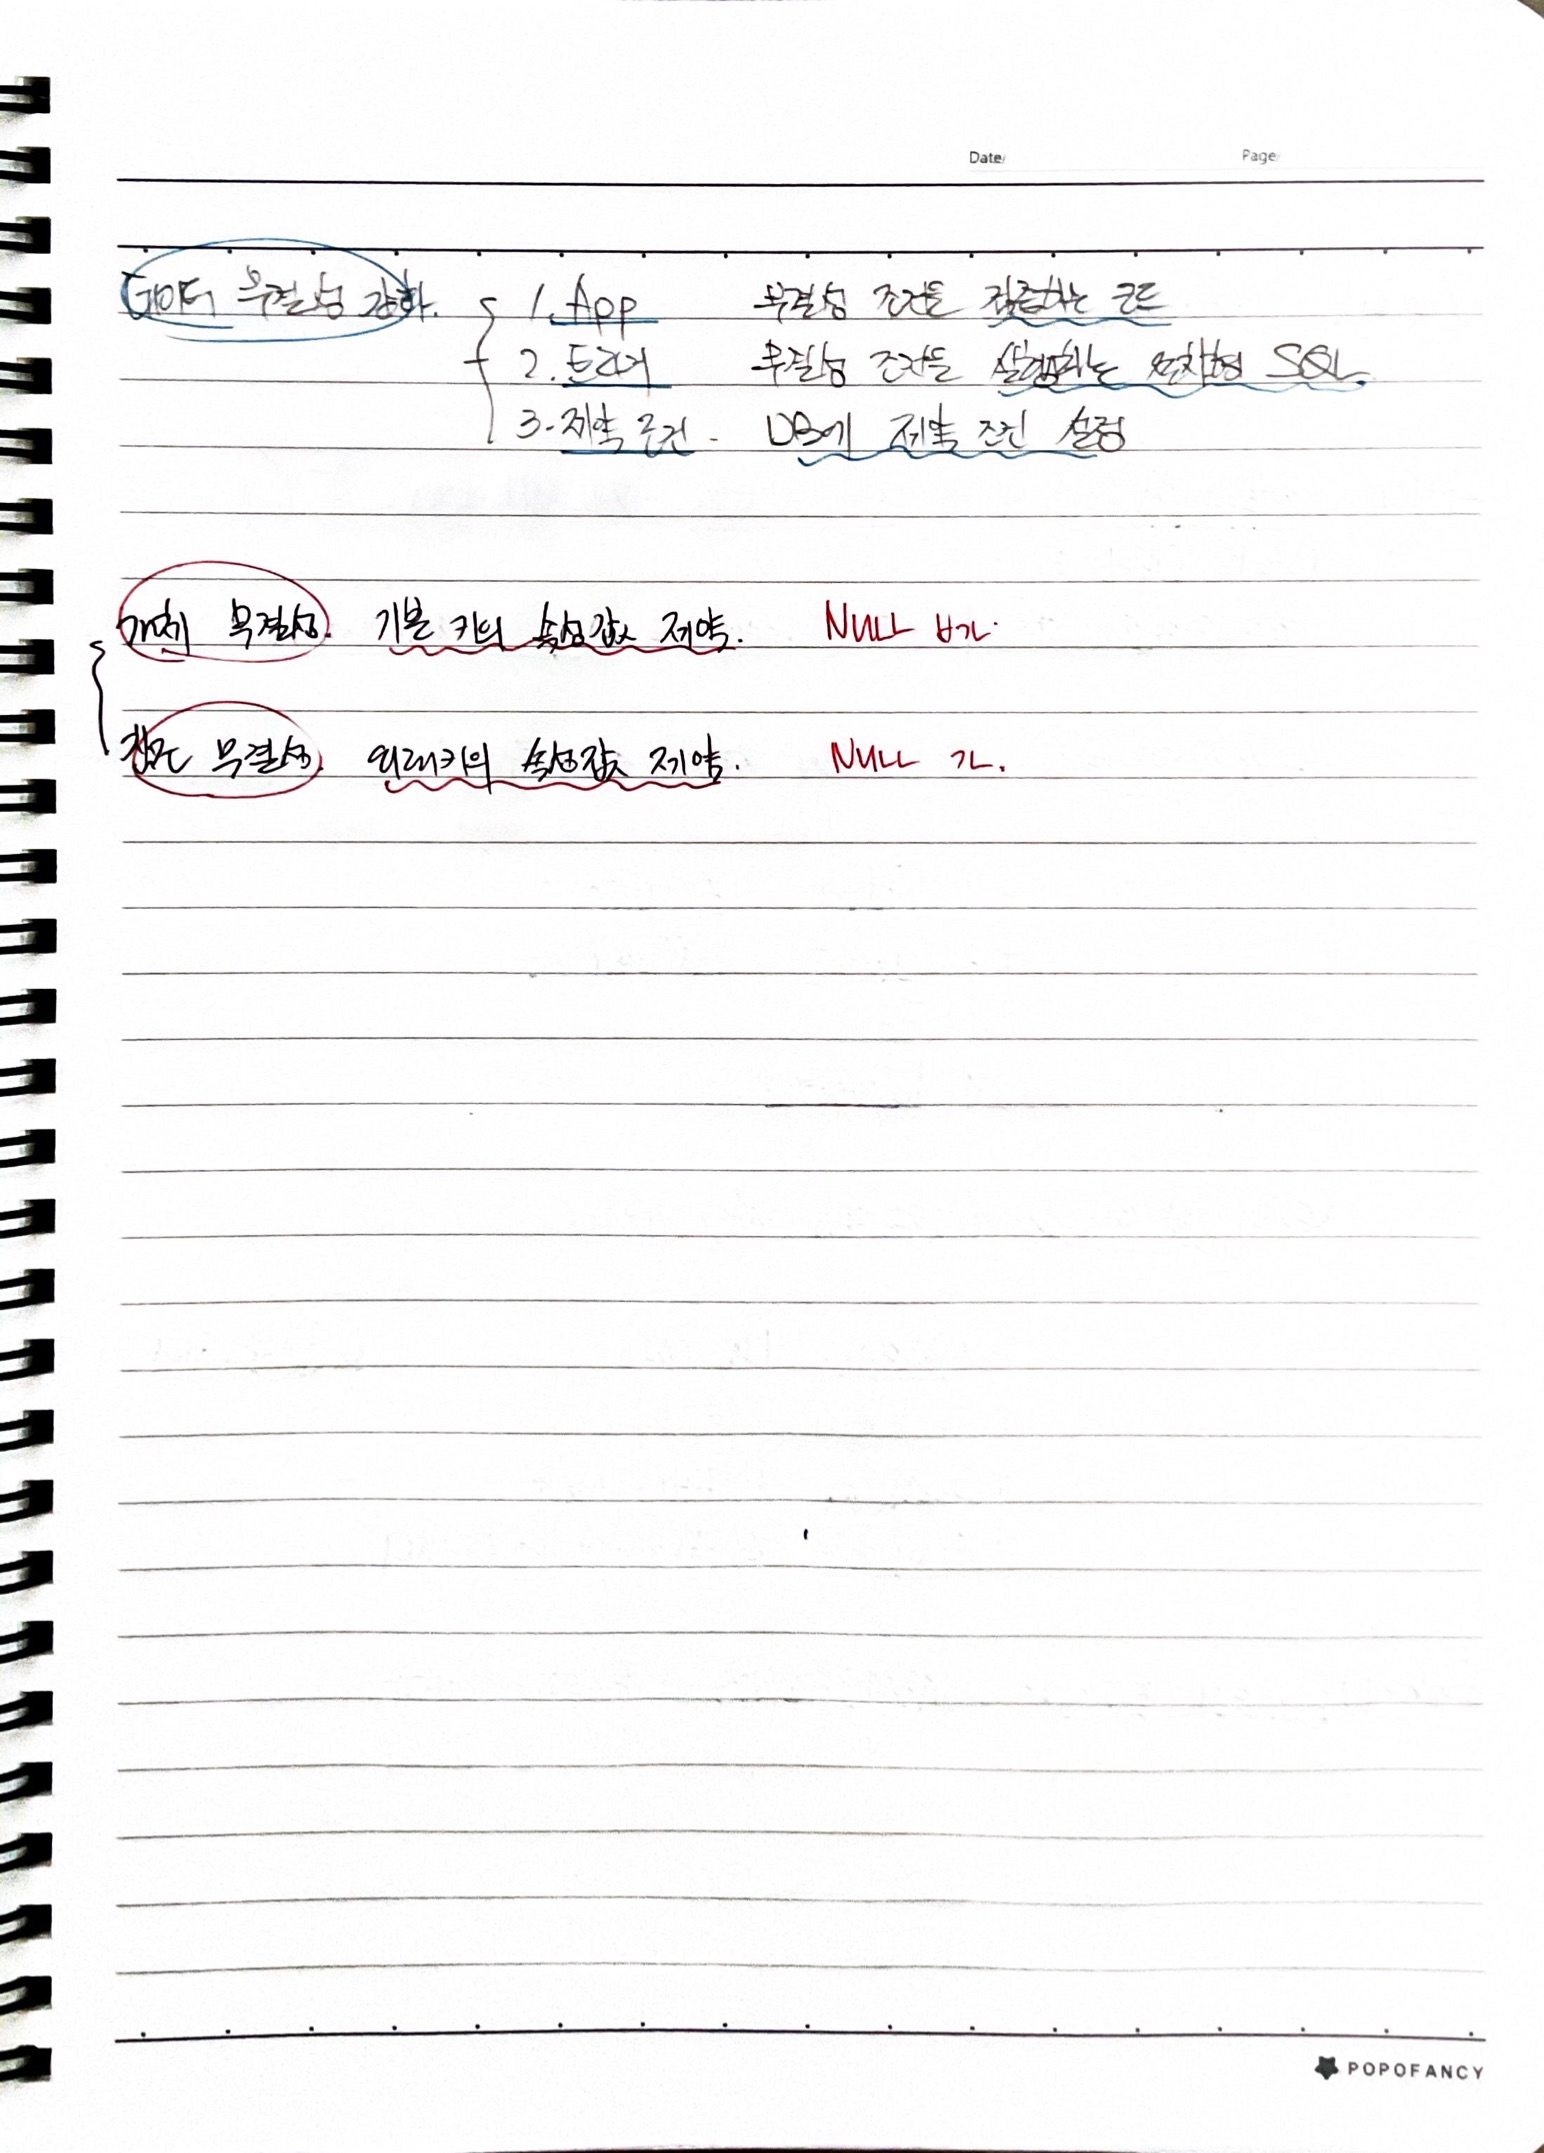 Date/ Page
데이터 무결성 강화. 1. App 무결성 조건을 검증하는 코드
2. 트리거 무결성 조건을 실행하는 절차형 SQL.
3. 제약 조건 - DB에 제약 조건 설정
개체 무결성. 기본 키의 속성값 제약. NULL 불가.
참조 무결성. 외래키의 속성값 제약. NULL 가.
POPOFANCY